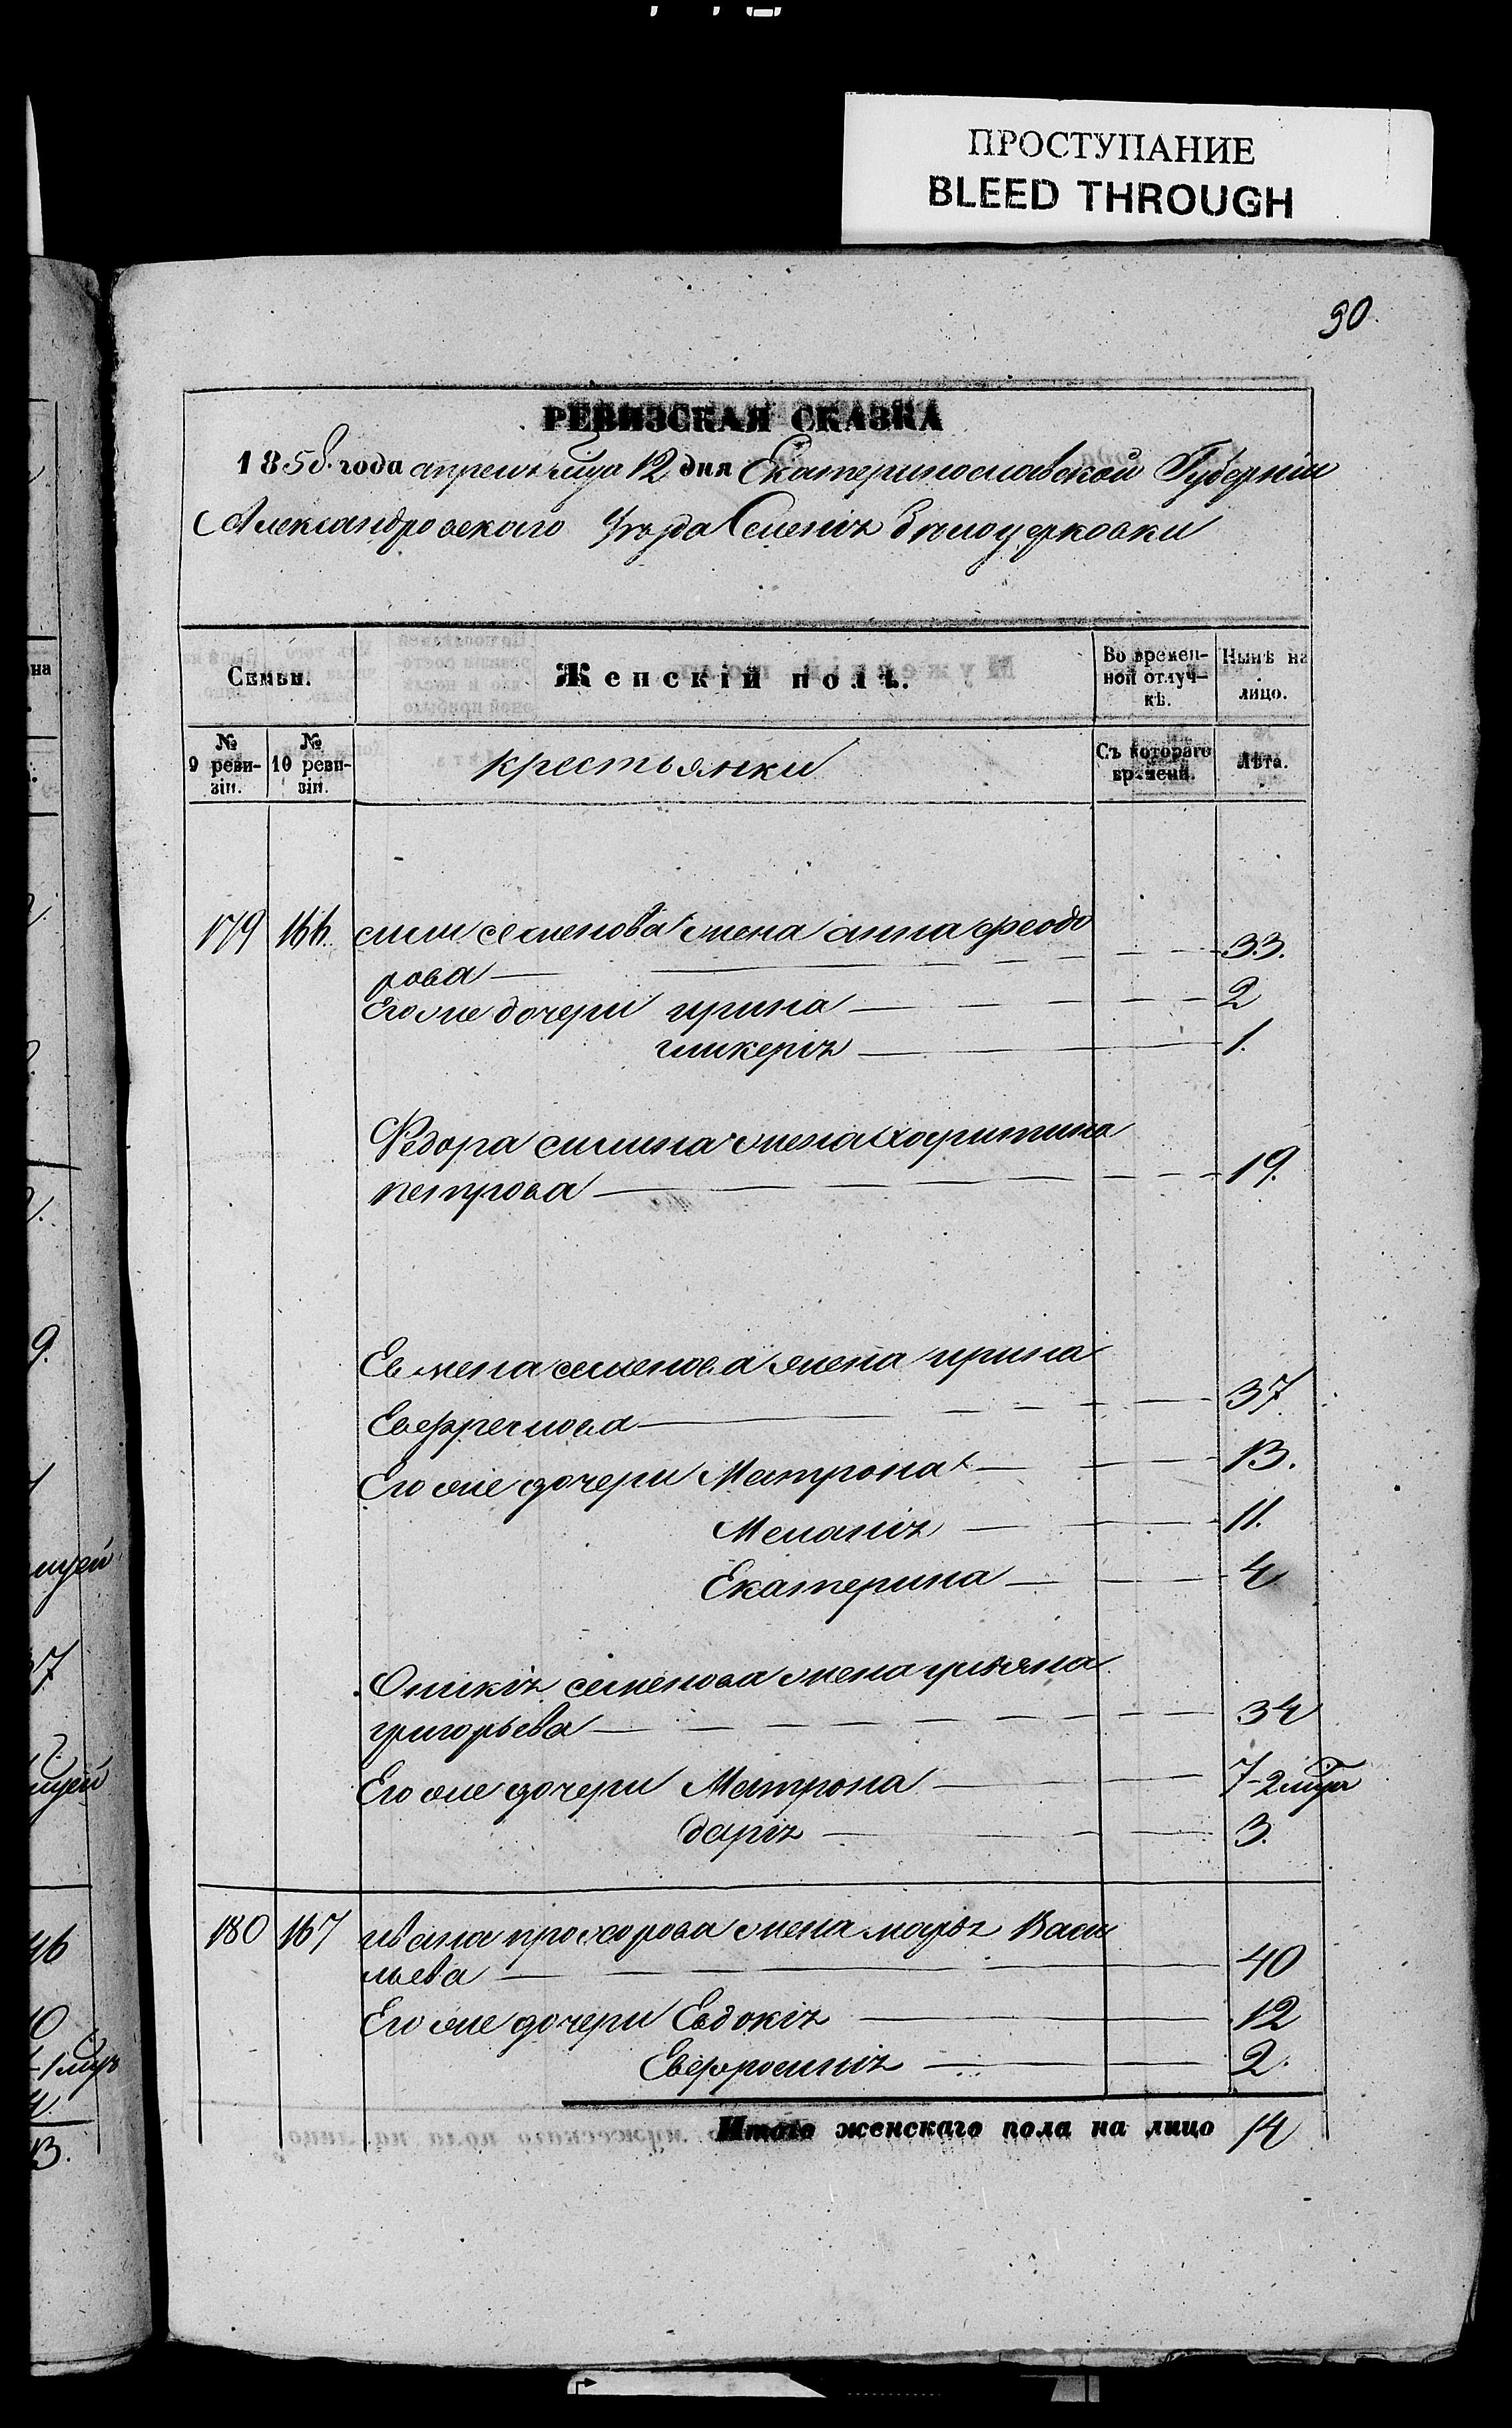 ПРОСТУПАНИЕ
BLEED THROUGH
90.
РЕВИЗСКАЯ СКАЗКА
1858. года апреля мца 12 дня Екатеринославской Губерніи
Александровскаго уѣзда Селенія Бѣлоцерковки
Семьи. Женскій полъ. Во времен- Нынѣ на
ной отлуч- лицо.
кѣ.
№ № крестьянки Съ котораго Лѣта.
9 реви- 10 реви- времени.
зіи. зіи.
179 166. силы семенова жена анна феодо
рова 33.
Его же дочери ирина 2
гликерія 1.
Федора силина жена харитина
петрова 19.
Евмена семенова жена ирина
Евфремова 37
Его же дочери Матрона 13.
Меланія 11.
Екатерина 4
Оникія семенова жена ульяна
григорьева 34
Его же дочери Матрона 7-2 мца
дарія 3.
180 167 ивана прохорова жена марѳя Васи
льева 40
Его же дочери Евдокія 12
Евфросинія 2.
Итого женскаго пола на лицо 14